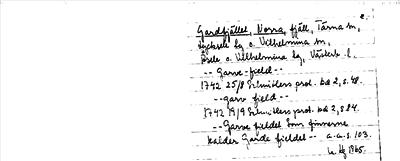 Gardfjället, Norra, fjäll, Tärna sn,
Lycksele lg o. Vilhelmina sn,
Åsele o. Vilhelmina lg, Västerb. l.
-- Garve-field --
1742 25/8 Schnitlers prot. bd 2, s. 48.
-- garv field --
1742 19/9 Schnitlers prot. bd 2, s 84.
-- Garve fieldet som finnerne
kalder Garde fieldet -- a.a. s. 103.
1965.